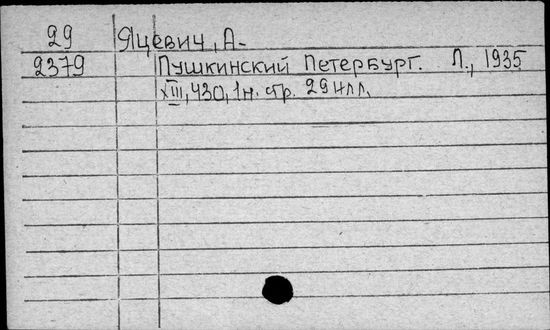 29 Яцевич, А-
2379 Пушкинский Петербург. Л., 1935
XIII, 430, 1н. стр. 29 илл.